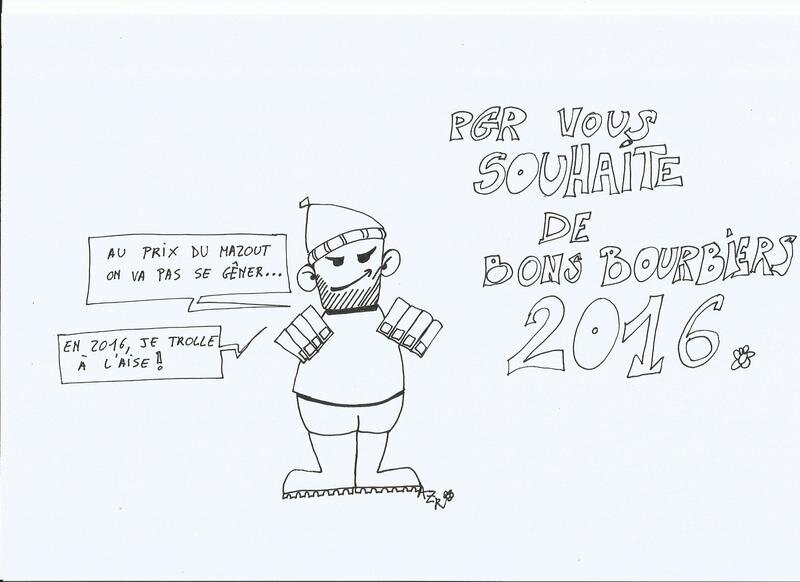 PGR VOUS
SOUHAITE
DE
BONS BOURBIERS
2016.
AU PRIX DU MAZOUT
ON VA PAS SE GÊNER...
EN 2016, JE TROLLE
À L'AISE!
AZR